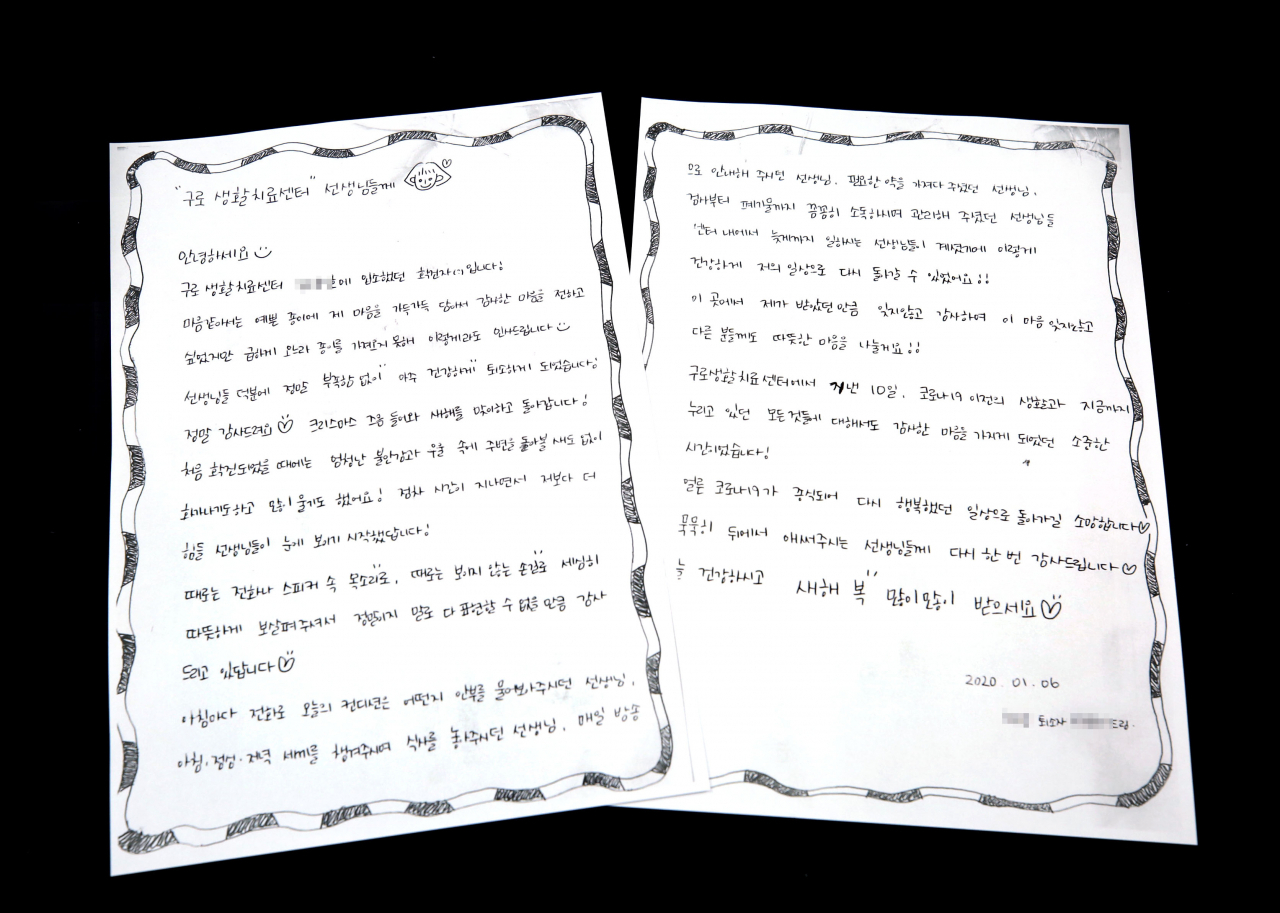 "구로 생활치료센터" 선생님들께
안녕하세요
구로 생활치료센터 호에 입소했던 확진자입니다!
마음같아서는 예쁜 종이에 제 마음을 가득가득 담아서 감사한 마음을 전하고
싶었지만 급하게 오느라 종이를 가져오지 못해 이렇게라도 인사드립니다
선생님들 덕분에 정말 부족함 없이 아주 건강하게 퇴소하게 되었습니다!
정말 감사드려요 크리스마스 즈음 들어와 새해를 맞이하고 돌아갑니다!
처음 확진되었을 때에는 엄청난 불안감과 우울 속에 주변을 돌아볼 새도 없이
화가나기도하고 많이 울기도 했어요! 점차 시간이 지나면서 저보다 더
힘들 선생님들이 눈에 보이기 시작했답니다!
때로는 전화나 스피커 속 목소리로, 때로는 보이지 않는 손길로 세심히
따뜻하게 보살펴주셔서 정말이지 말로 다 표현할 수 없을 만큼 감사
드리고 있답니다
아침마다 전화로 오늘의 컨디션은 어떤지 안부를 물어봐주시던 선생님,
아침·점심·저녁 세끼를 챙겨주시며 식사를 놓아주시던 선생님, 매일 방송
으로 안내해 주시던 선생님, 필요한 약을 가져다 주셨던 선생님,
검사부터 폐기물까지 꼼꼼히 소독하시며 관리해 주셨던 선생님들
센터 내에서 늦게까지 일하시는 선생님들이 계셨기에 이렇게
건강하게 저의 일상으로 다시 돌아갈 수 있었어요!!
이 곳에서 제가 받았던 만큼 잊지않고 감사하며 이 마음 잊지않고
다른 분들께도 따뜻한 마음을 나눌게요!!
구로생활치료센터에서 지낸 10일, 코로나19 이전의 생활과 지금까지
누리고 있던 모든것들에 대해서도 감사한 마음을 가지게 되었던 소중한
시간이었습니다!
얼른 코로나19가 종식되어 다시 행복했던 일상으로 돌아가길 소망합니다
묵묵히 뒤에서 애써주시는 선생님들께 다시 한 번 감사드립니다
늘 건강하시고 새해 복 많이많이 받으세요
2020. 01. 06
퇴소자 드림.